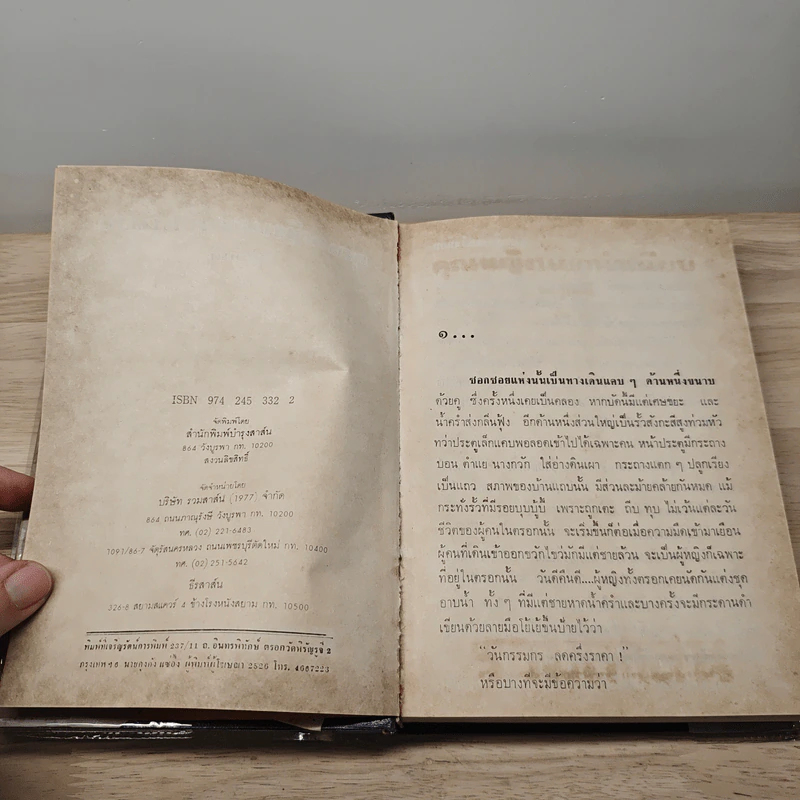 ISBN 974 245 332 2
จัดพิมพ์โดย
สำนักพิมพ์บำรุงสาส์น
864 วังบูรพา กท. 10200
สงวนลิขสิทธิ์
จัดจำหน่ายโดย
บริษัท รวมสาส์น (1977) จำกัด
864 ถนนภาณุรังษี วังบูรพา กท. 10200
ทศ. (02) 221-6483
1091/86-7 จัตุรัสนครหลวง ถนนเพชรบุรีตัดใหม่ กท. 10400
ทศ. (02) 251-5642
ธีรสาส์น
326-8 สยามสแควร์ 4 ข้างโรงหนังสยาม กท. 10500
พิมพ์ที่เจริญรัตน์การพิมพ์ 237/11 ถ. อินทรพิทักษ์ ตรอกวัดหิรัญรูจี 2
กรุงเทพฯ ผู้พิมพ์ผู้โฆษณา 2526 โทร. 4667223
๑...
ซอกซอยแห่งนั้นเป็นทางเดินแคบ ๆ ด้านหนึ่งขนาบ
ด้วยคู ซึ่งครั้งหนึ่งเคยเป็นคลอง หากบัดนี้มีแต่เศษขยะ และ
น้ำครำส่งกลิ่นฟุ้ง อีกด้านหนึ่งส่วนใหญ่เป็นรั้วสังกะสีสูงท่วมหัว
ทว่าประตูเล็กแคบพอลอดเข้าไปได้เฉพาะคน หน้าประตูมีกระถาง
บอน ตำแย นางกวัก ใส่อ่างดินเผา กระถางแตก ๆ ปลูกเรียง
เป็นแถว สภาพของบ้านแถบนั้น มีส่วนละม้ายคล้ายกันหมด แม้
กระทั่งรั้วที่มีรอยบุบบู้บี้ เพราะถูกเตะ ถีบ ทุบ ไม่เว้นแต่ละวัน
ชีวิตของผู้คนในตรอกนั้น จะเริ่มขึ้นก็ต่อเมื่อความมืดเข้ามาเยือน
ผู้คนที่เดินเข้าออกขวักไขว่มักมีแต่ชายล้วน จะเป็นผู้หญิงก็เฉพาะ
ที่อยู่ในตรอกนั้น วันดีคืนดี....ผู้หญิงทั้งตรอกเคยนัดกันแต่งชุด
อาบน้ำ ทั้ง ๆ ที่มีแต่ชายหาดน้ำครำและบางครั้งจะมีกระดานดำ
เขียนด้วยลายมือโย้เย้ขึ้นป้ายไว้ว่า
"วันกรรมกร ลดครึ่งราคา !"
หรือบางทีจะมีข้อความว่า